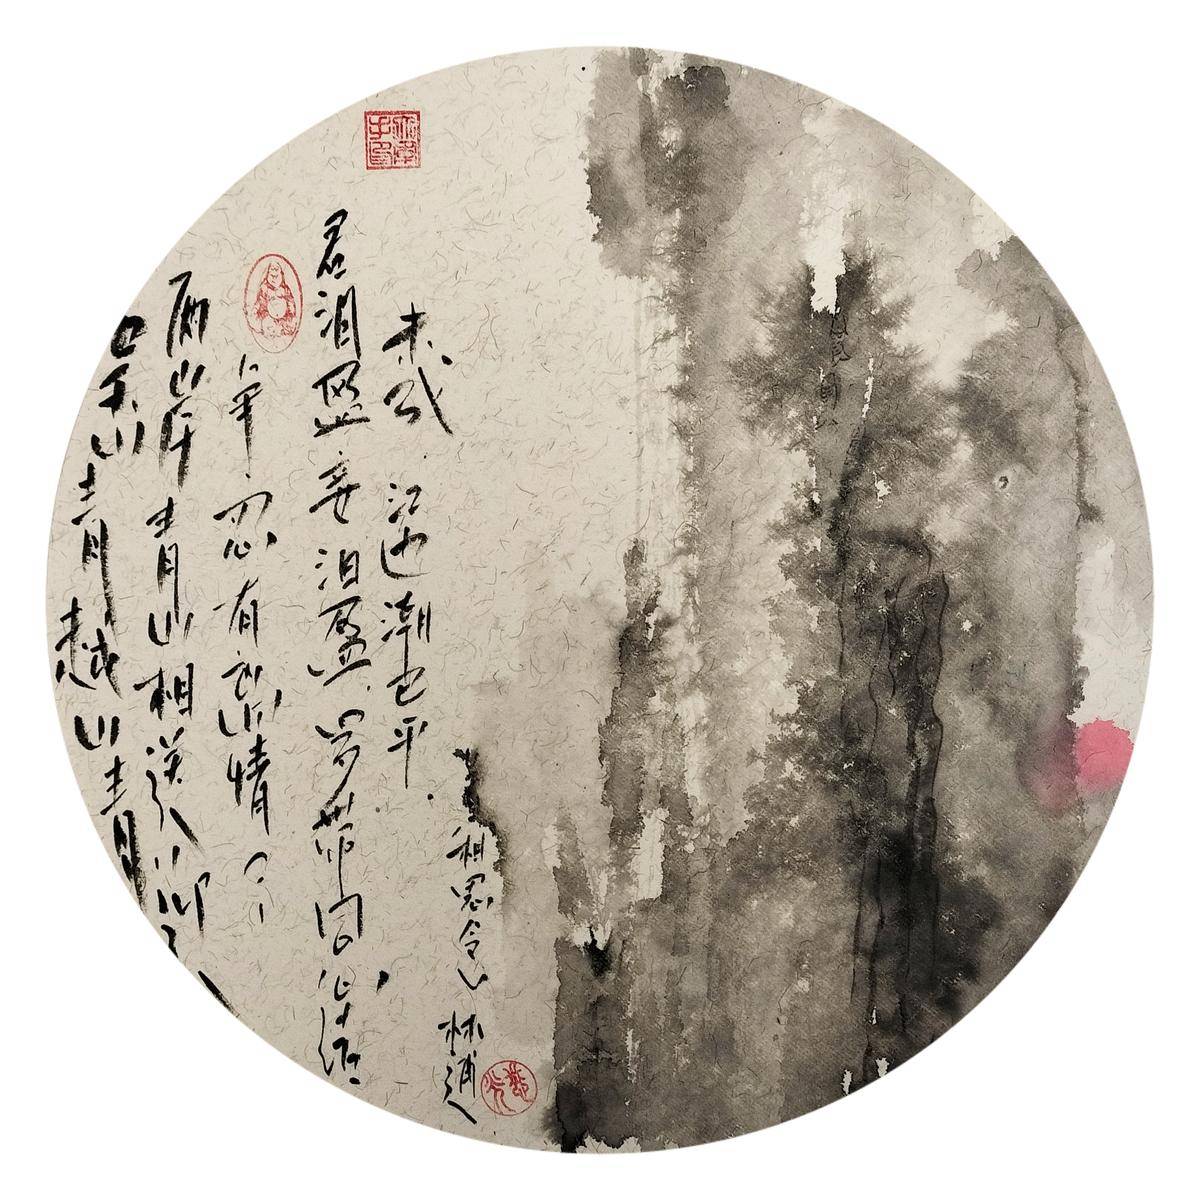 吴山青越山青
两岸青山相送迎
争忍有离情
君泪盈妾泪盈罗带同心结
未成江边潮已平
相思令 林逋